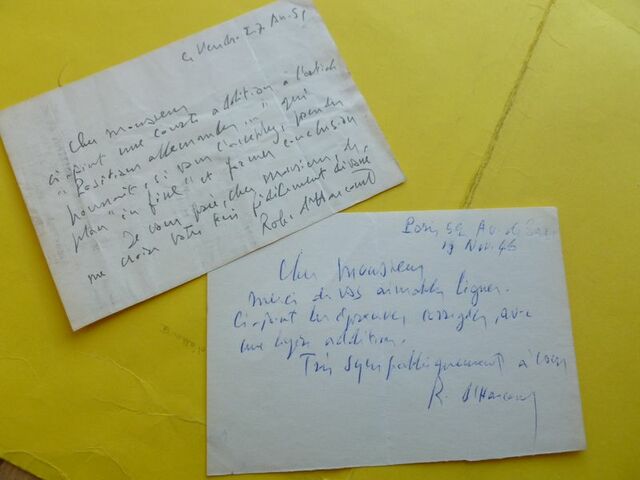 ce Vendr. 27 Av. 51
Cher monsieur
ci-joint une courte addition à l'article
"Positions allemandes" qui
pourrait, si vous l'acceptez, prendre
place "in fine" et former conclusion
Je vous prie, cher monsieur, de
me croire votre très fidèlement dévoué
Robert d'Harcourt
Paris 59 Av. de
19 Nov. 46
Cher Monsieur
merci de vos aimables lignes.
Ci-joint les épreuves corrigées, avec
une légère addition.
Très sympathiquement à vous
R. d'Harcourt